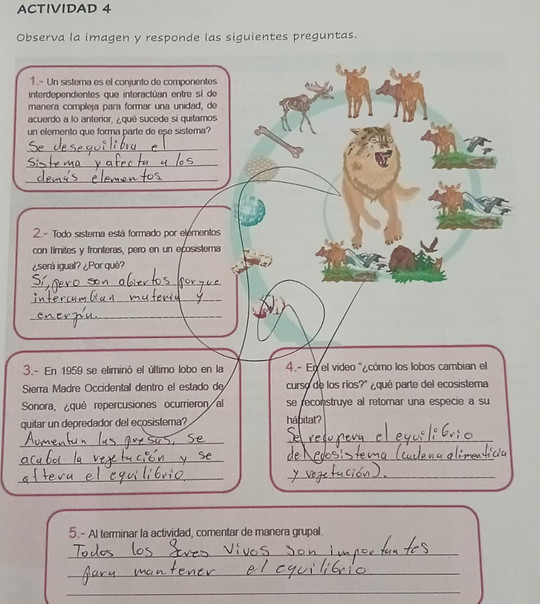 ACTIVIDAD 4
Observa la imagen y responde las siguientes preguntas.
1.- Un sistema es el conjunto de componentes
interdependientes que interactúan entre sí de
manera compleja para formar una unidad, de
acuerdo a lo anterior, ¿qué sucede si quitamos
un elemento que forma parte de ese sistema?
Se desequilibra el
sistema y afecta a los
demás elementos
2.- Todo sistema está formado por elementos
con límites y fronteras, pero en un ecosistema
¿será igual? ¿Por qué?
Sí, pero son abiertos porque
intercambian materia y
energía.
3.- En 1959 se eliminó el último lobo en la
Sierra Madre Occidental dentro el estado de
Sonora, ¿qué repercusiones ocurrieron al
quitar un depredador del ecosistema?
Aumentan las presas, se
acaba la vegetación y se
altera el equilibrio.
4.- En el video "¿cómo los lobos cambian el
curso de los ríos?" ¿qué parte del ecosistema
se reconstruye al retornar una especie a su
hábitat?
Se recupera el equilibrio
del ecosistema (cadena alimenticia
y vegetación).
5.- Al terminar la actividad, comentar de manera grupal.
Todos los seres vivos son importantes
para mantener el equilibrio